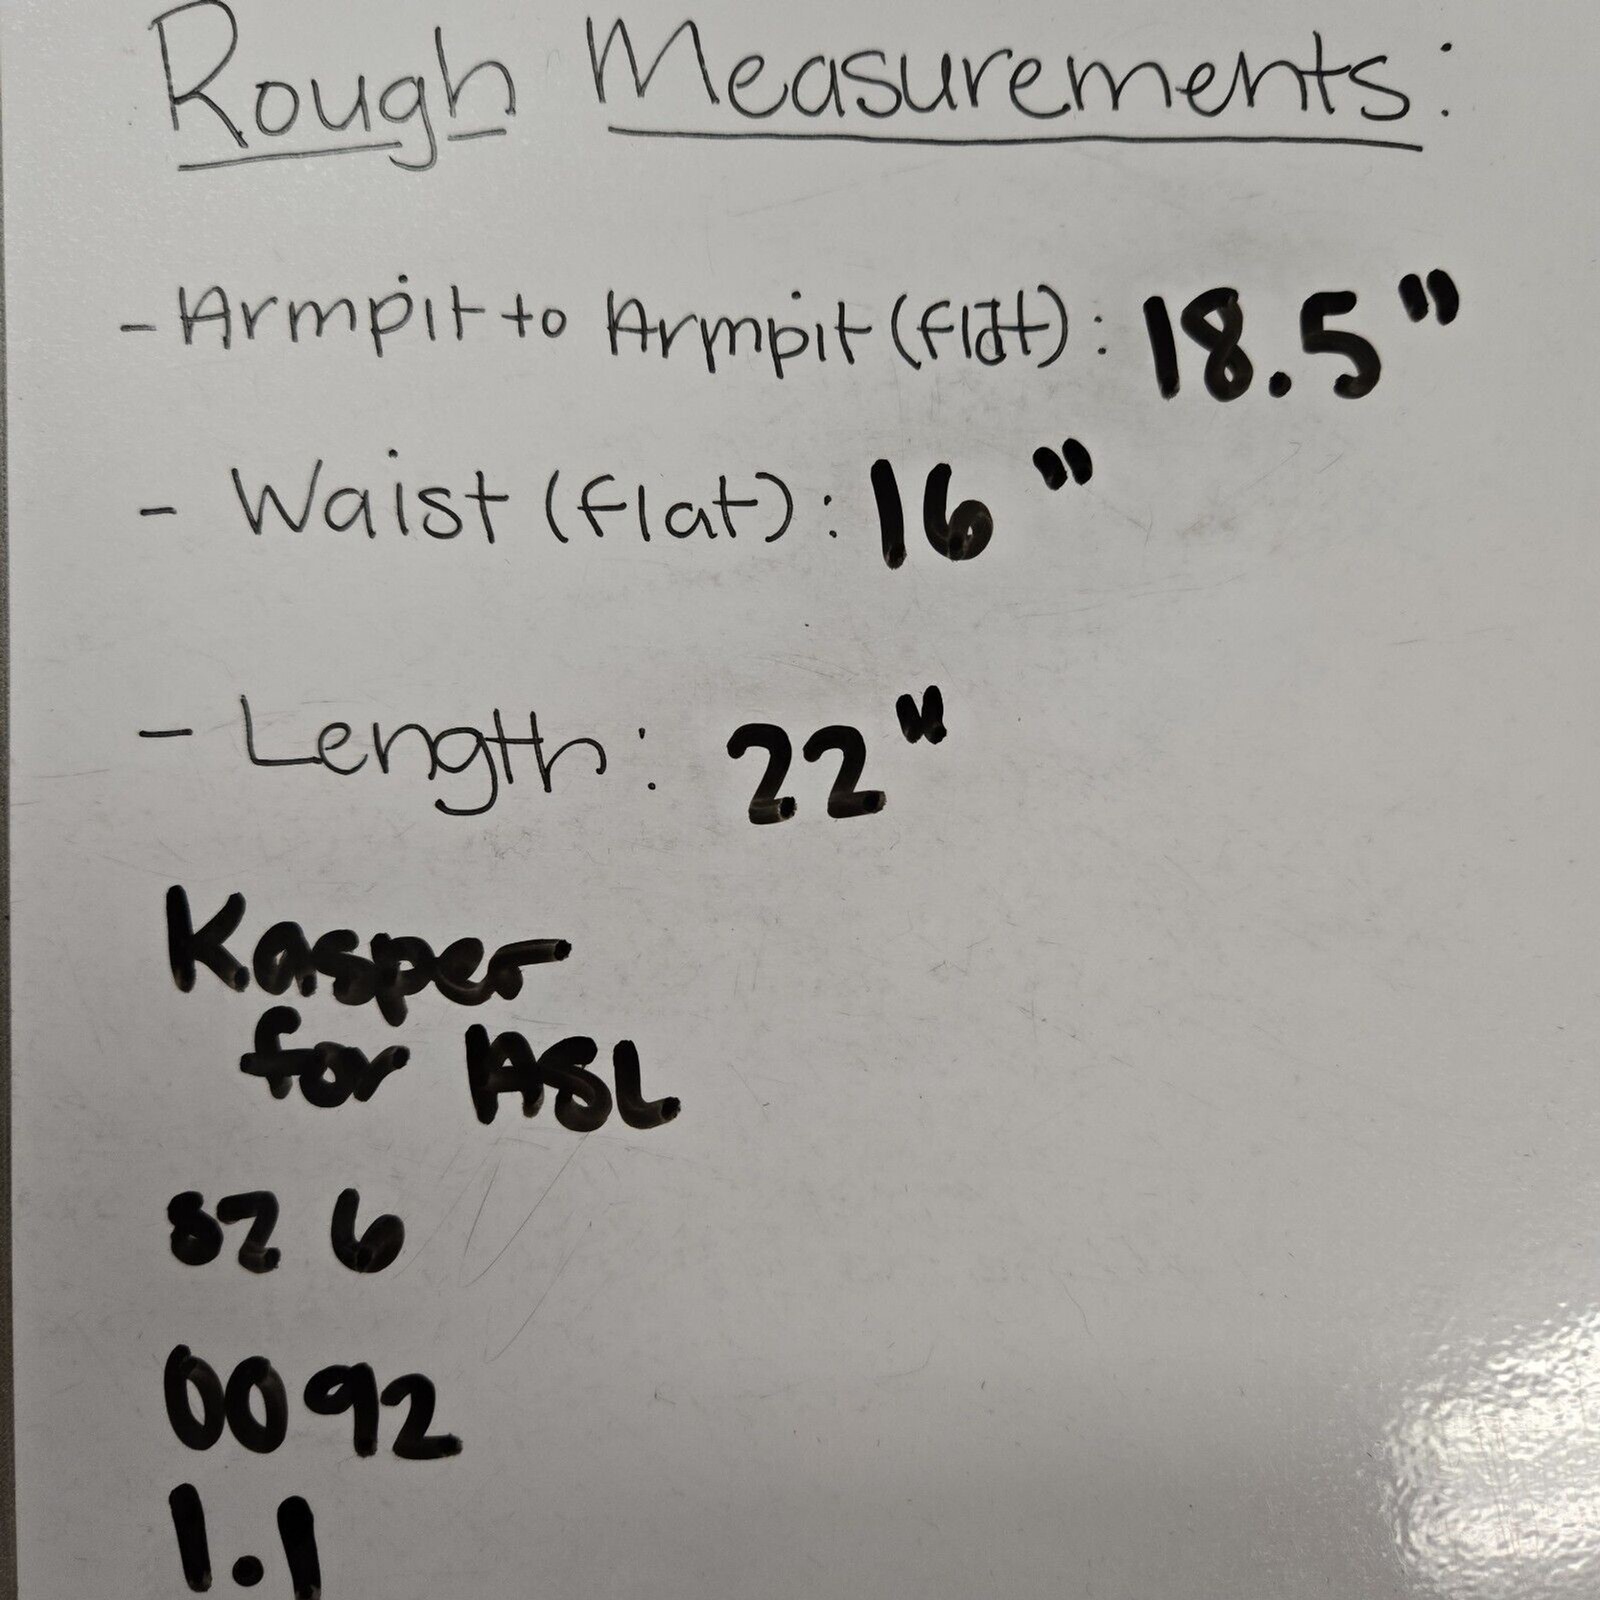 Rough Measurements:
- Armpit to Armpit (flat): 18.5"
- Waist (flat): 16"
- Length: 22"
Kasper
for ASL
sz 6
0092
1.1